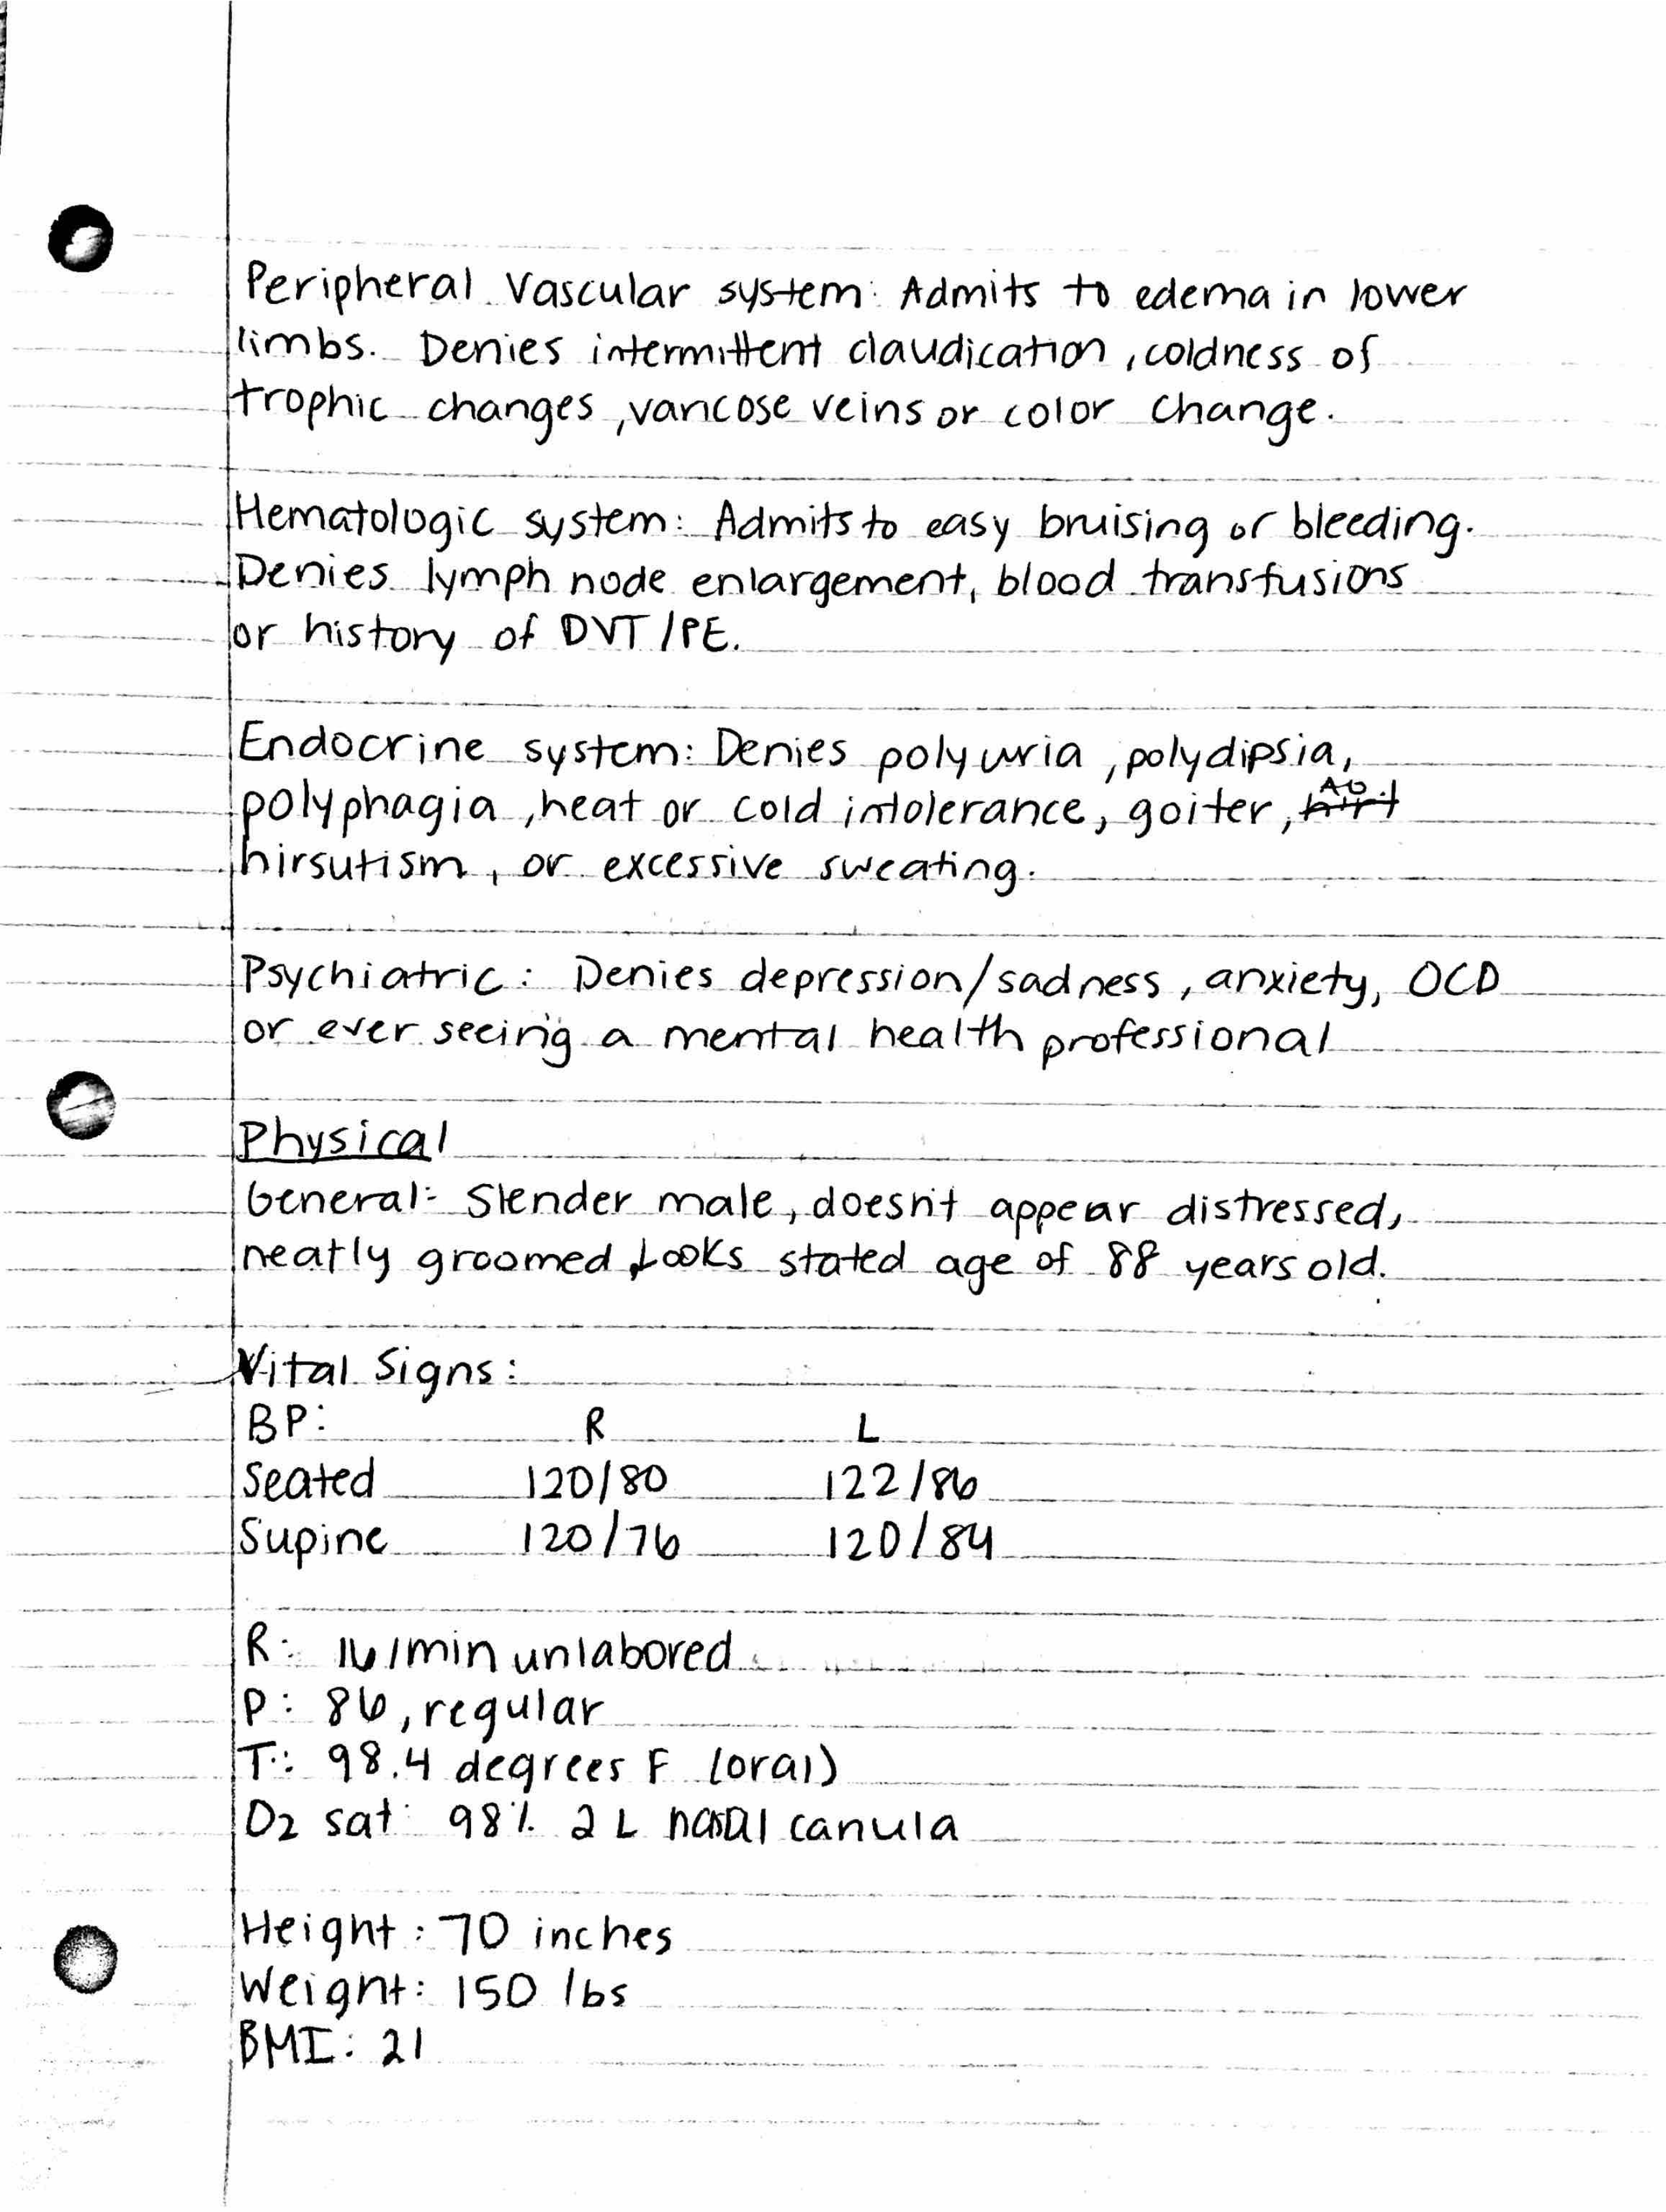 Peripheral Vascular system: Admits to edema in lower
limbs. Denies intermittent claudication, coldness of
trophic changes, varicose veins or color change.
Hematologic system: Admits to easy bruising or bleeding.
Denies lymph node enlargement, blood transfusions
or history of DVT/PE.
Endocrine system: Denies polyuria, polydipsia,
AD
polyphagia, heat or cold intolerance, goiter, hirt
hirsutism, or excessive sweating.
Psychiatric: Denies depression/sadness, anxiety, OCD
or ever seeing a mental health professional
Physical
General: Slender male, doesn't appear distressed,
neatly groomed, Looks stated age of 88 years old.
Vital Signs:
BP: R L
Seated 120/80 122/86
Supine 120/76 120/84
R: 16/min unlabored
P: 86, regular
T: 98.4 degrees F (oral)
O2 sat: 98% 2 L nasal canula
Height: 70 inches
Weight: 150 lbs
BMI: 21